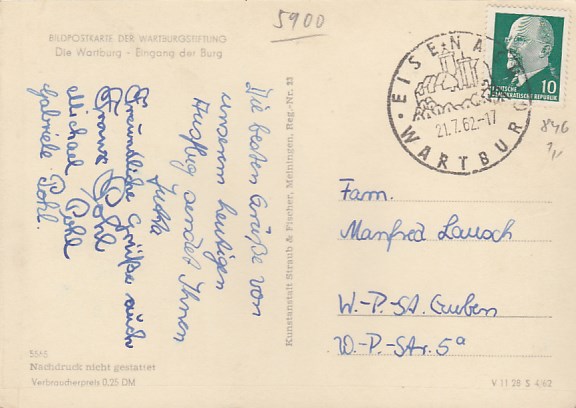 5900
BILDPOSTKARTE DER WARTBURGSTIFTUNG
Die Wartburg - Eingang der Burg
Die besten Grüße von
unserem heutigen
Ausflug sendet Ihnen
Jutta
Freundliche Grüße auch
Franz Pohl
Michael Pohl
Gabriele Pohl.
5565
Nachdruck nicht gestattet
Verbraucherpreis 0,25 DM
Kunstanstalt Straub & Fischer, Meiningen, Reg.-Nr. 23
EISENA
21.7.62-17
WARTBUR
DEUTSCHE
DEMOKRATISCHE REPUBLIK
10
846
Fam.
Manfred Lausch
W.-P.-St. Guben
W.-P.-Str. 5a
V 11 28 S 4/62